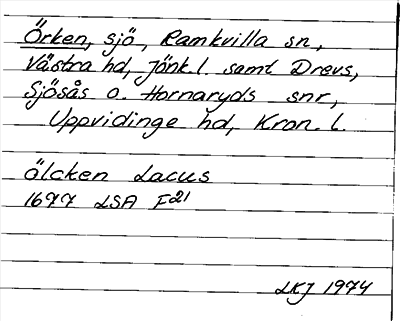 Örken, sjö, Ramkvilla sn,
Västra hd, Jönk.l. samt Drevs,
Sjösås o. Hornaryds snr,
Uppvidinge hd, Kron. l.
älcken Lacus
1677 LSA F21
LKJ 1974